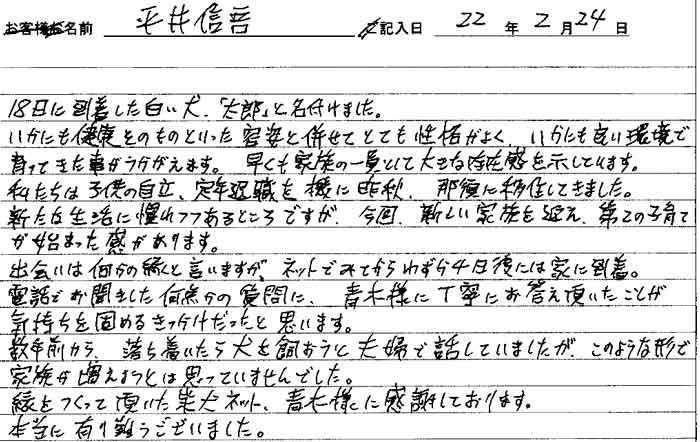 お客様お名前 平井信吾 ご記入日 22年2月24日
18日に到着した白い犬、「太郎」と名付けました。
いかにも健康そのものといった容姿と併せてとても性格がよく、いかにも良い環境で
育ってきた事がうかがえます。 早くも家族の一員として大きな存在感を示しています。
私たちは子供の自立、定年退職を機に昨秋、那須に移住してきました。
新たな生活に慣れつつあるところですが、今回、新しい家族を迎え、第2の子育て
が始まった感があります。
出会いは何かの縁と言いますが、ネットでみてからわずか4日後には家に到着。
電話でお聞きした何点かの質問に、青木様に丁寧にお答え頂いたことが
気持ちを固めるきっかけだったと思います。
数年前から、落ち着いたら犬を飼おうと夫婦で話していましたが、このような形で
家族が増えようとは思っていませんでした。
縁をつくって頂いた柴犬ネット、青木様に感謝しております。
本当に有り難うございました。